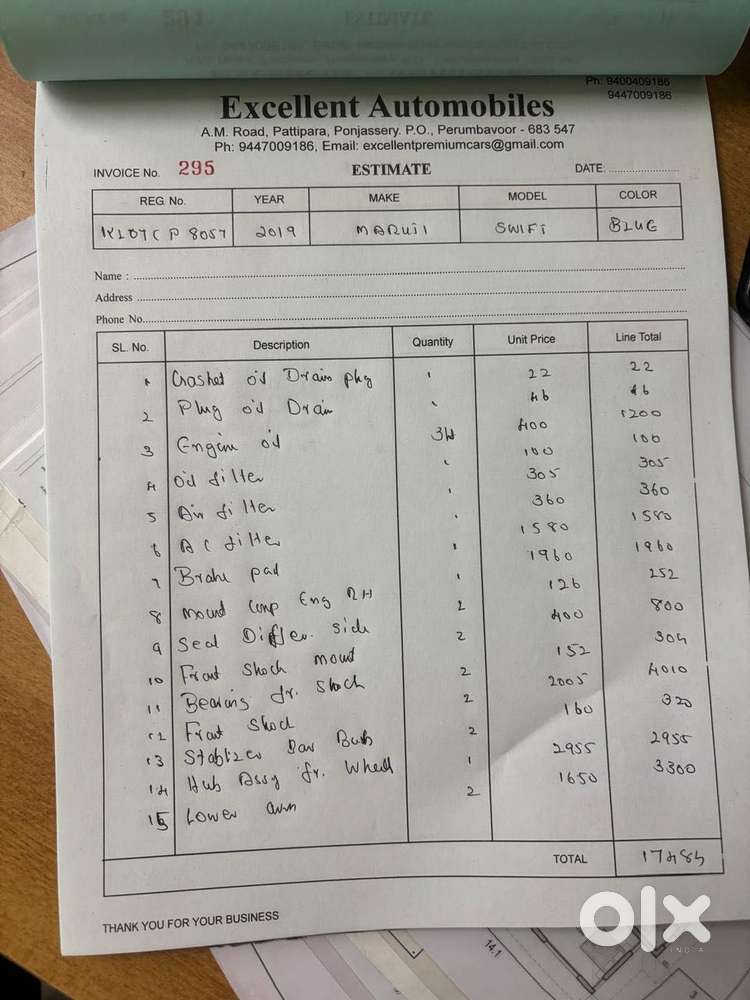 Ph: 9400409186
9447009186
Excellent Automobiles
A.M. Road, Pattipara, Ponjassery. P.O., Perumbavoor - 683 547
Ph: 9447009186, Email: excellentpremiumcars@gmail.com
INVOICE No. 295 ESTIMATE DATE:
REG. No. YEAR MAKE MODEL COLOR
KL07CP8057 2019 MARUTI SWIFT BLUE
Name :
Address
Phone No.
SL. No. Description Quantity Unit Price Line Total
1 Gashet oil Drain plug 1 22 22
2 Plug oil Drain 1 46 46
3 Engine oil 3H 400 1200
4 Oil filter 1 100 100
5 Air filter 1 305 305
6 AC filter 1 360 360
7 Brake pad 1 1580 1580
8 Mount Comp Eng RH 1 1960 1960
9 Seal Differ. side 2 126 252
10 Front Shock mount 2 400 800
11 Bearing fr. Shock 2 152 304
12 Front Shock 2 2005 4010
13 Stablizer Bar Bush 2 160 320
14 Hub Assy fr. Wheel 1 2955 2955
15 Lower arm 2 1650 3300
TOTAL 17484
THANK YOU FOR YOUR BUSINESS
olx
INDIA
14.1